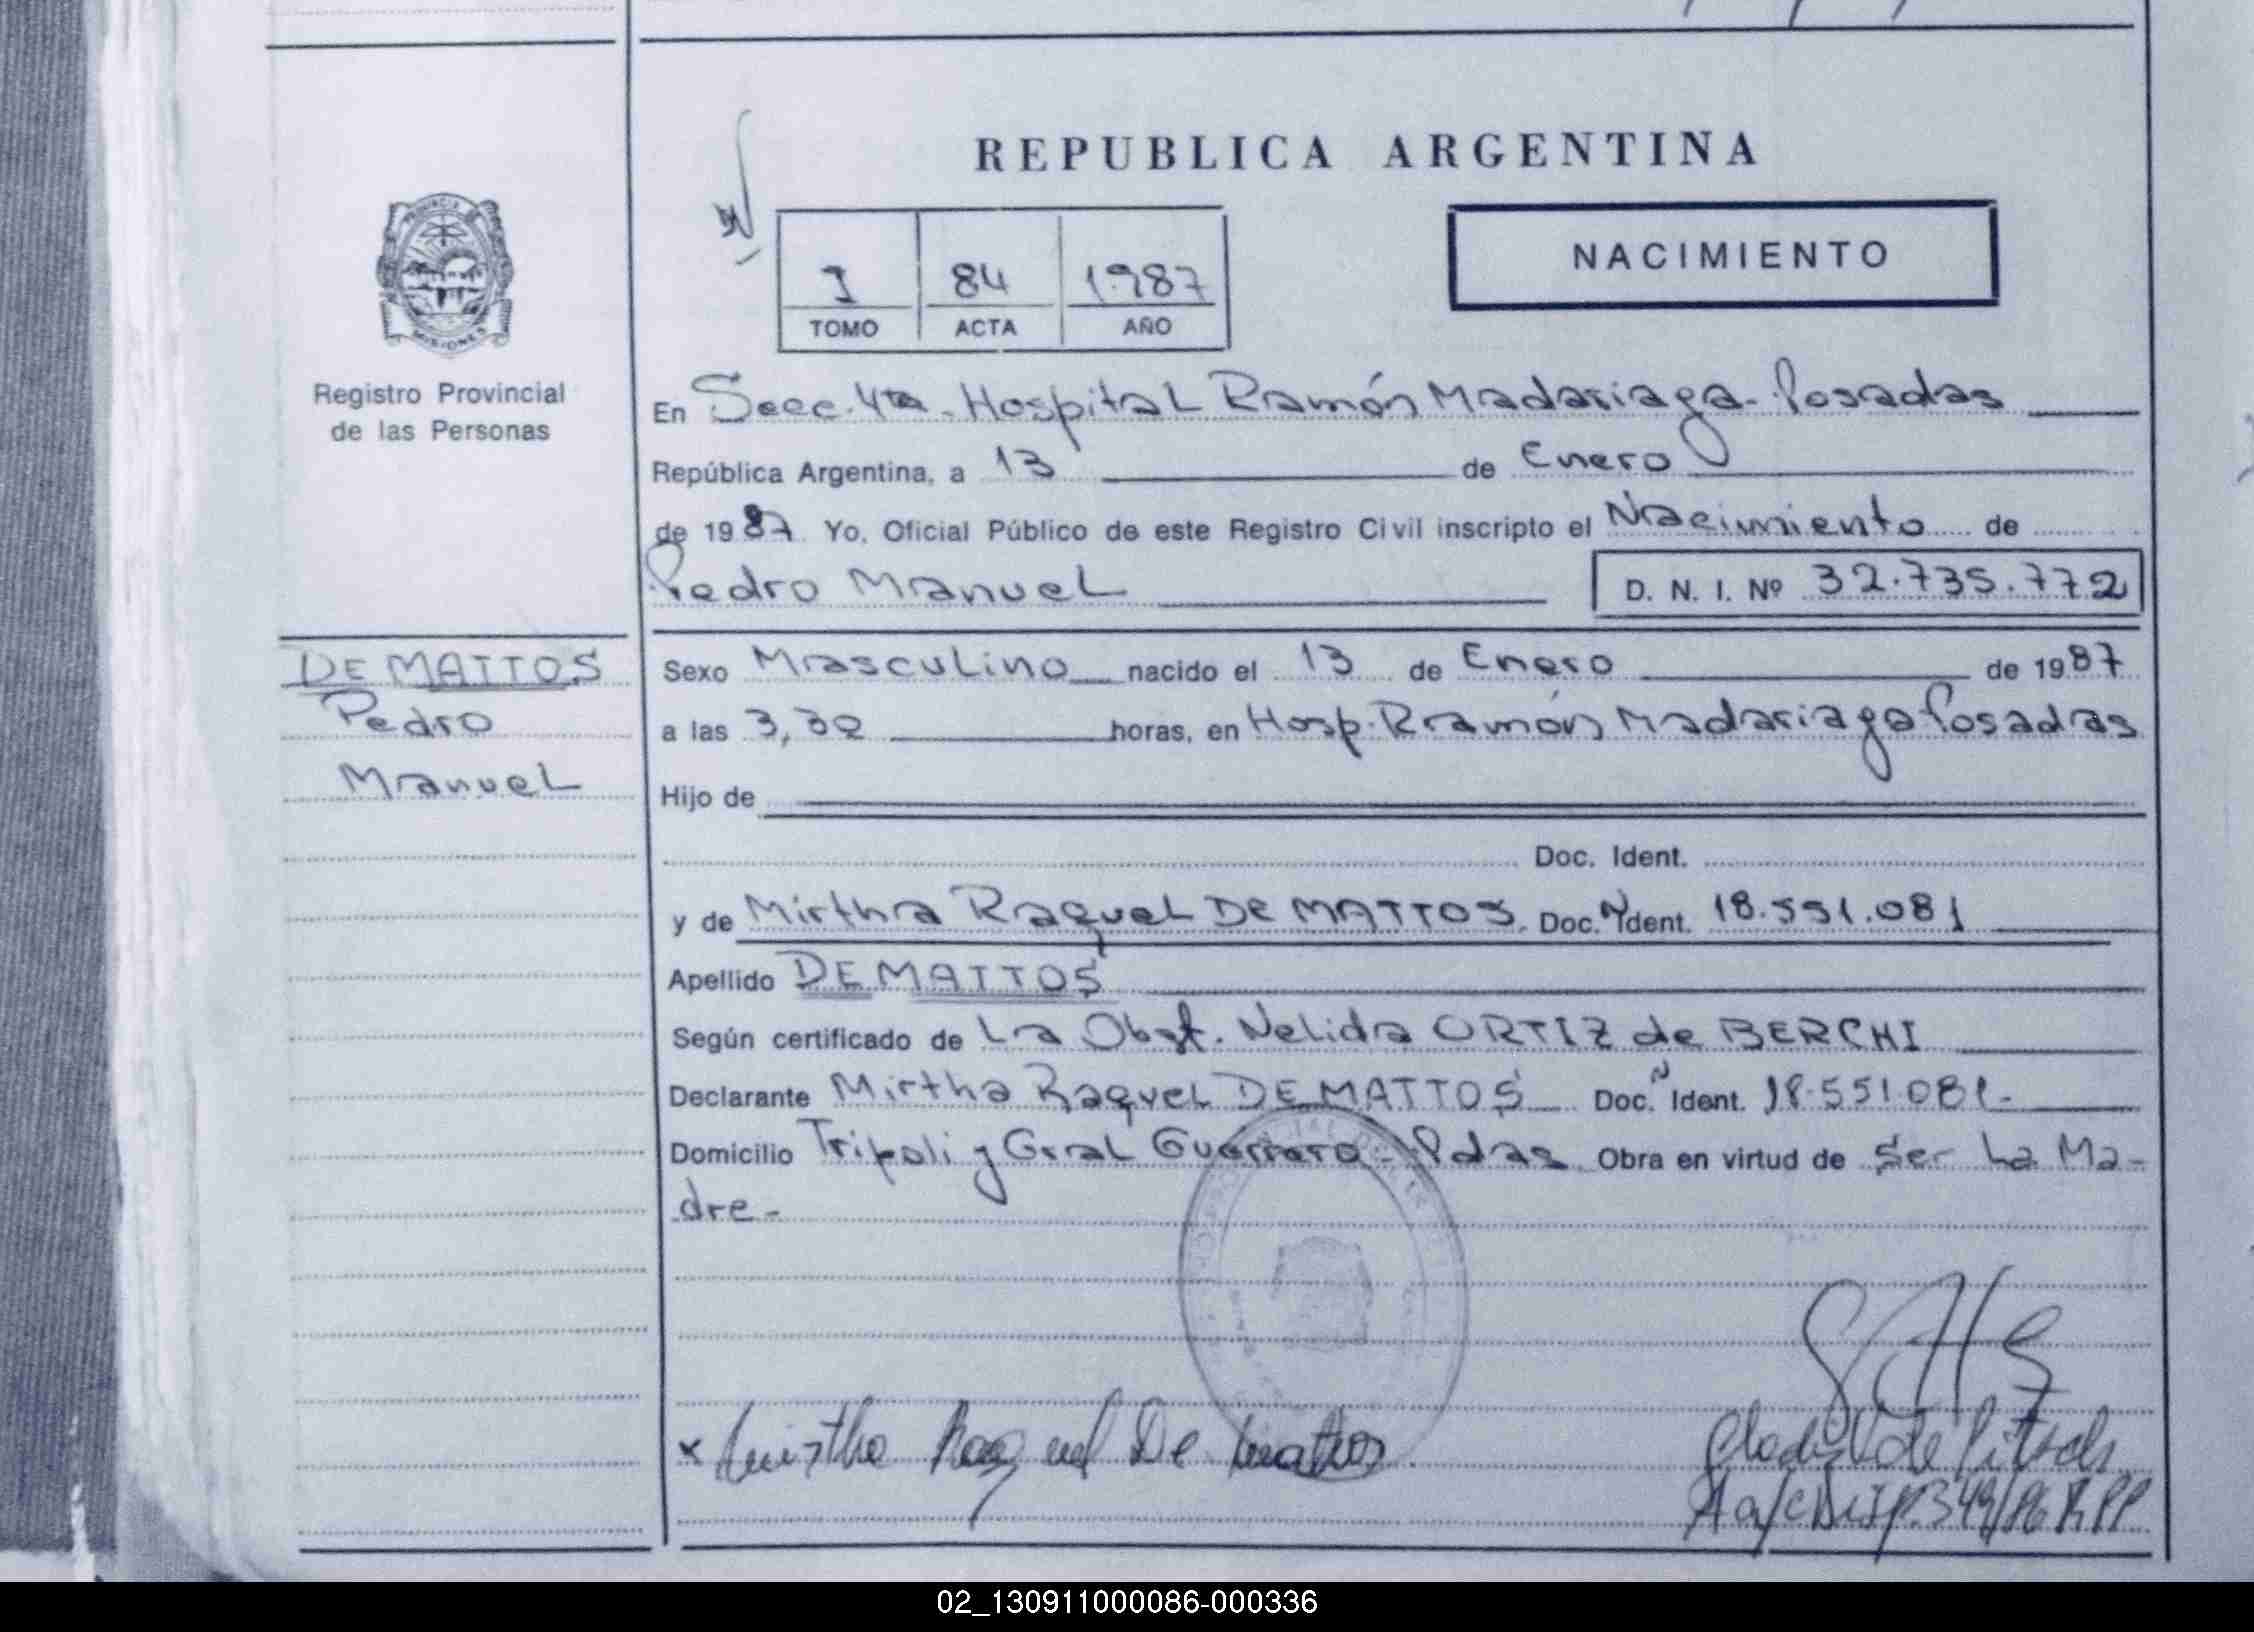 REPUBLICA ARGENTINA
NACIMIENTO
PROVINCIA DE
MISIONES
Registro Provincial
de las Personas
I 84 1987
TOMO ACTA AÑO
En Secc. 4ta - Hospital Ramón Madariaga - Posadas
República Argentina, a 13 de Enero
de 1987 Yo, Oficial Público de este Registro Civil inscripto el Nacimiento de
Pedro Manuel
D. N. I. Nº 32.735.772
DE MATTOS
Pedro
Manuel
Sexo Masculino nacido el 13 de Enero de 1987
a las 3,30 horas, en Hosp. Ramón Madariaga Posadas
Hijo de
Doc. Ident.
y de Mirtha Raquel DE MATTOS. Doc. Ident. 18.551.081
Apellido DE MATTOS
Según certificado de La Obst. Nelida ORTIZ de BERCHI
Declarante Mirtha Raquel DE MATTOS Doc. Ident. 18.551.081.-
Domicilio Tripoli y Gral Guerrero - Pdas Obra en virtud de Ser La Ma-
dre -
x Mirtha Raquel De Mattos
02_130911000086-000336